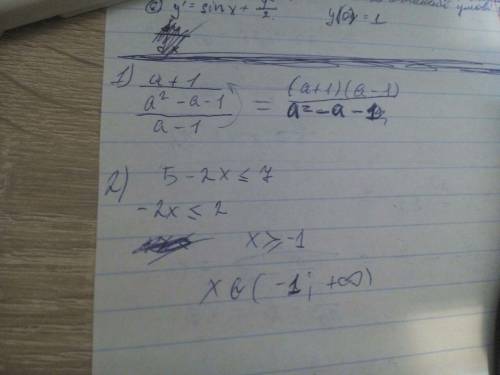 y' = sin x + y²/2   y(0) = 1
1) (a+1)/((a²-a-1)/(a-1)) = ((a+1)(a-1))/(a²-a-1)
2) 5 - 2x ≤ 7
-2x ≤ 2
x ≥ -1
x ∈ (-1; +∞)